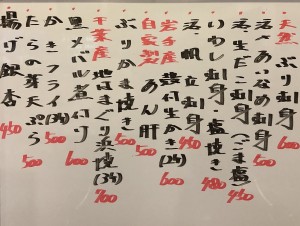 天然ぶり刺身 600
活〆あいなめ刺身
活生だこ刺身(ごま塩) 450
いわし刺身 480
活帆立刺身 450
岩手産 殻付生かき(2ケ) 600
自家製 あん肝 500
ぶりかま焼き 500
千葉産 地はまぐり浜焼(3ケ) 700
黒メバル煮付け 600
かきフライ(3ケ) 500
たらの芽天ぷら 500
揚げ銀杏 450